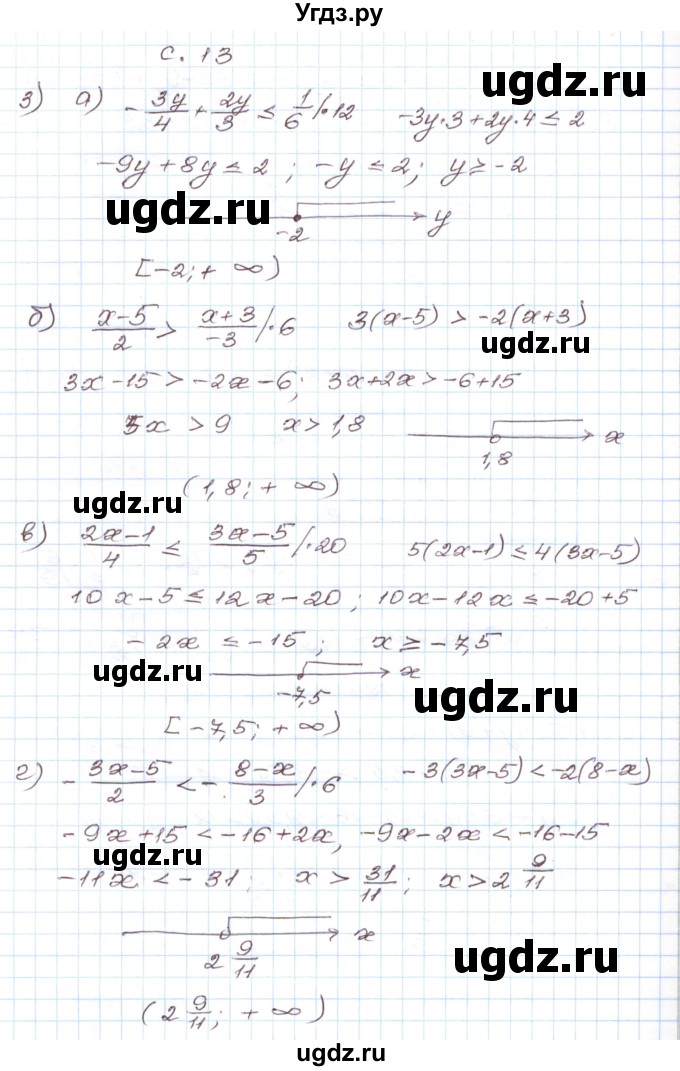 Угдз.ру
с. 13
ugdz.ru
3) а) -3y/4 + 2y/3 ≤ 1/6 /·12 -3y·3+2y·4 ≤ 2
-9y+8y ≤ 2 ; -y ≤ 2; y ≥ -2
ugdz.ru
-2 y
[-2; + ∞)
б) x-5/2 > x+3/-3 /·6 3(x-5) > -2(x+3)
ugdz.ru
3x-15 > -2x-6; 3x+2x > -6+15
5x > 9 x > 1,8
1,8 x
(1,8; + ∞)
ugdz.ru
в) 2x-1/4 ≤ 3x-5/5 /·20 5(2x-1) ≤ 4(3x-5)
10x-5 ≤ 12x-20; 10x-12x ≤ -20+5
-2x ≤ -15; x ≥ -7,5
ugdz.ru
-7,5 x
ugdz.ru
[-7,5; + ∞)
г) - 3x-5/2 < - 8-x/3 /·6 -3(3x-5) < -2(8-x)
-9x+15 < -16+2x, -9x-2x < -16-15
ugdz.ru
-11x < -31; x > 31/11; x > 2 9/11
2 9/11 x
ugdz.ru
(2 9/11; + ∞)
ugdz.ru